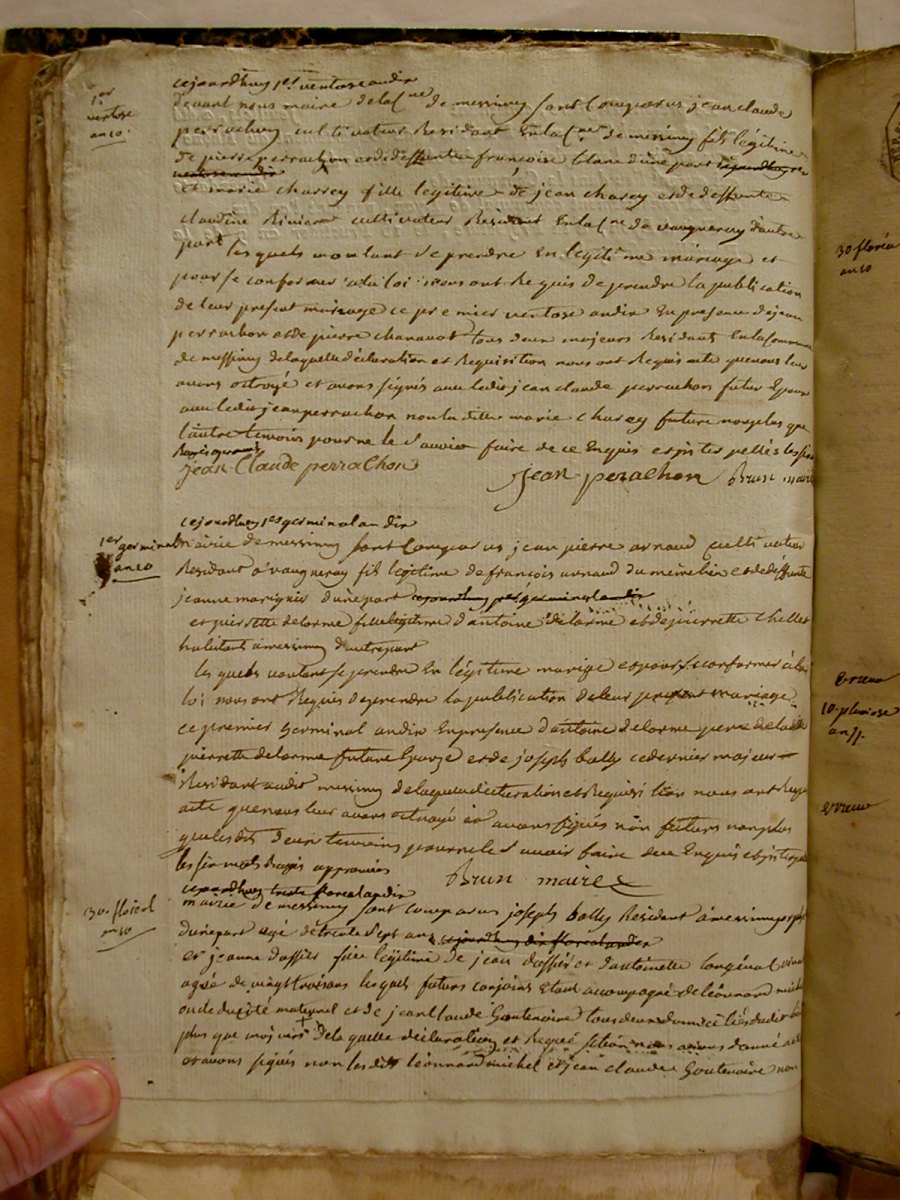 1er
ventose
an 10.
cejourdhuy 1er ventose an dix
devant nous maire de la Cne de messimy sont Comparus jean claude
perrachon cultivateur Residant En la Cne de messimy fils legitime
de pierre perrachon et de deffunte françoise blanc d'une part cejourdhuy 1er
ventose an dix
et marie charvey fille legitime de jean charvey et de deffunte
claudine Riviere cultivateur Residant En la Cne de vaugneray d'autre
part
les quels voulant se prendre En legitime mariage et
pour se conformer a la loi nous ont Requis de prendre la publication
de leur present mariage ce premier ventose an dix En presence de jean
perrachon et de pierre chanavat tous deux majeurs Residant En la Commune
de messimy de laquelle déclaration et Requisition nous ont Requis acte que nous leur
avons octroyé et avons signés avec ledit jean claude perrachon futur Epoux
avec ledit jean perrachon non la ditte marie charvey future non plus que
l'autre temoins pour ne le savoir faire de ce Enquis
jean Claude perrachon
jean perachon Brun maire
1er germinal
an 10
cejourdhuy 1er germinal an dix
mairie de messimy sont Comparus jean pierre arnaud cultivateur
Residant a vaugneray fils legitime de françois arnaud du même lieu et de deffunte
jeanne d'une part cejourdhuy 1er germinal an dix
et pierrette delorme fille legitime d'antoine delorme et de pierrette
habitant a messimy d'autre part
les quels voulant se prendre En légitime mariage et pour se conformer à la
loi nous ont Requis de prendre la publication de leur present mariage
ce premier Germinal an dix En presence d'antoine delorme pere de la ditte
pierrette delorme future Epouze et de joseph bally ce dernier majeur
Residant audit messimy de laquelle déclaration et Requisition nous ont Requis
acte que nous leur avons octroyé et avons signés non futurs non plus
que les dits deux temoins pour ne le savoir faire de ce Enquis
les six mots Rayés approuvés
Brun maire
30. floreal
an 10
cejourdhuy trente floreal an dix
mairie de messimy sont comparus joseph bally Résident a messimy
d'une part agé de trente sept ans cejourdhuy dix floreal an dix
et jeanne dassier fille légitime de jean dassier et d'antoinette
agée de vingt trois ans les quels futurs conjoints Etant accompagné de léonnard michel
oncle du cote maternel et de jean Claude Goutenoire tous deux domiciliés dudit
plus que de la quelle déclaration et Requisition nous avons donné acte
et avons signés non les dits léonnard michel et jean claude Goutenoire non
30 floréal
an 10
10. pluviose
an 11.